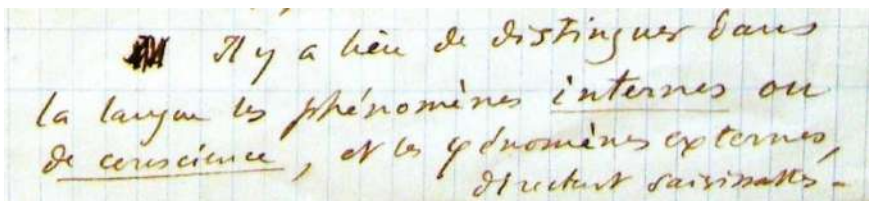 Il y a lieu de distinguer dans
la langue les phénomènes internes ou
de conscience, et les φénomènes externes,
directent saisissables -